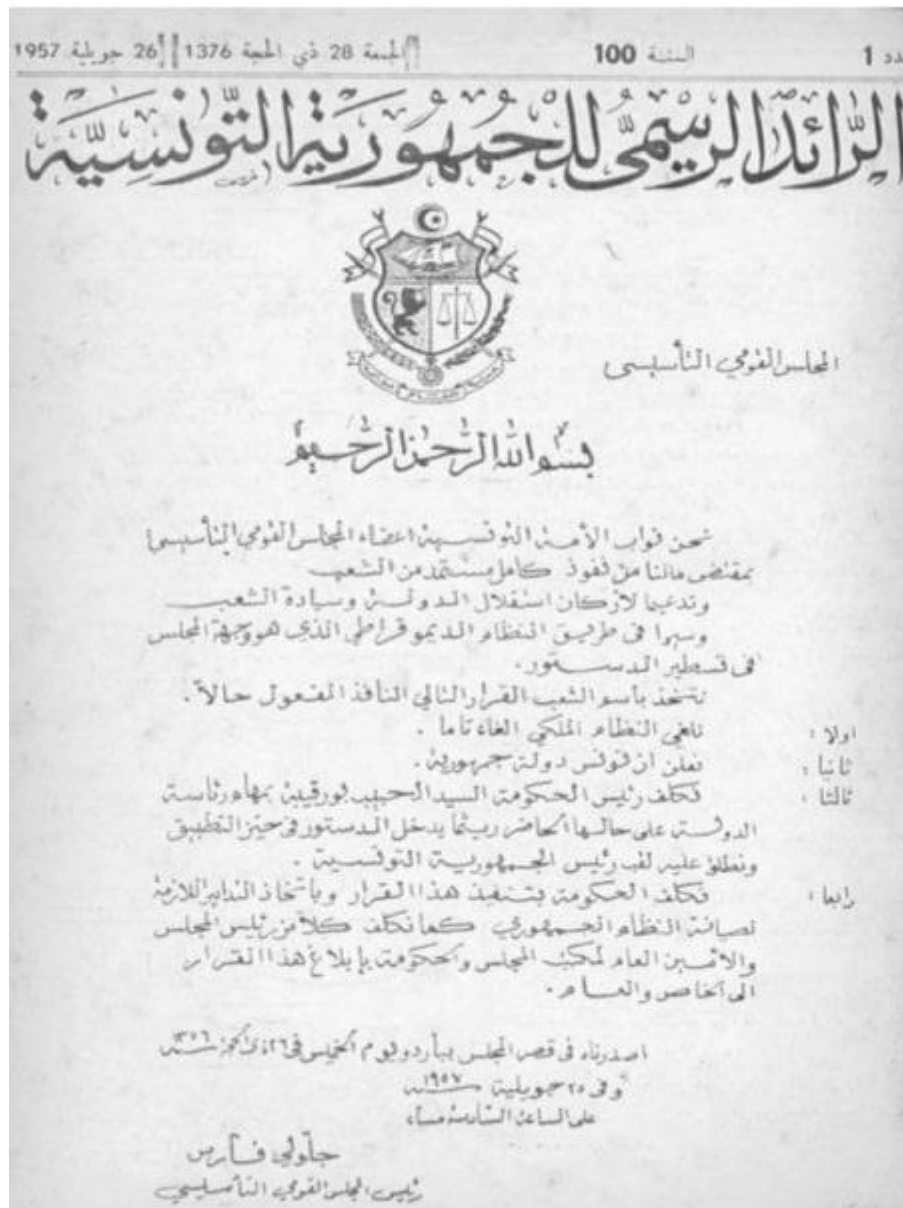 عدد 1 السنة 100 الجمعة 28 ذي الحجة 1376 26 جويلية 1957
الرائد الرسمي للجمهورية التونسية
المجلس القومي التأسيسي
بسم الله الرحمن الرحيم
نحن نواب الأمة التونسية اعضاء المجلس القومي التأسيسي
بمقتضى مالنا من نفوذ كامل مستمد من الشعب
وتدعيما لأركان استقلال الدولة وسيادة الشعب
وسيرا في طريق النظام الديموقراطي الذي هو وجهة المجلس
في تسطير الدستور.
نتخذ باسم الشعب القرار التالي النافذ المفعول حالا.
اولا : نلغي النظام الملكي الغاء تاما .
ثانيا : نعلن ان تونس دولة جمهورية .
ثالثا : نكلف رئيس الحكومة السيد الحبيب بورقيبة بمهام رئاسة
الدولة على حالها الحاضر ريثما يدخل الدستور في حيز التطبيق
ونطلق عليه لقب رئيس الجمهورية التونسية .
رابعا : نكلف الحكومة بتنفيذ هذا القرار وباتخاذ التدابير اللازمة
لصيانة النظام الجمهوري كما نكلف كلا من رئيس المجلس
والأمين العام لمكتب المجلس والحكومة بإبلاغ هذا القرار
الى الخاص والعام .
اصدرناه في قصر المجلس بباردو يوم الخميس في ٢٦ ذي الحجة سنة
وفي ٢٥ جويلية سنة ١٩٥٧
على الساعة السادسة مساء
جلولي فارس
رئيس المجلس القومي التأسيسي